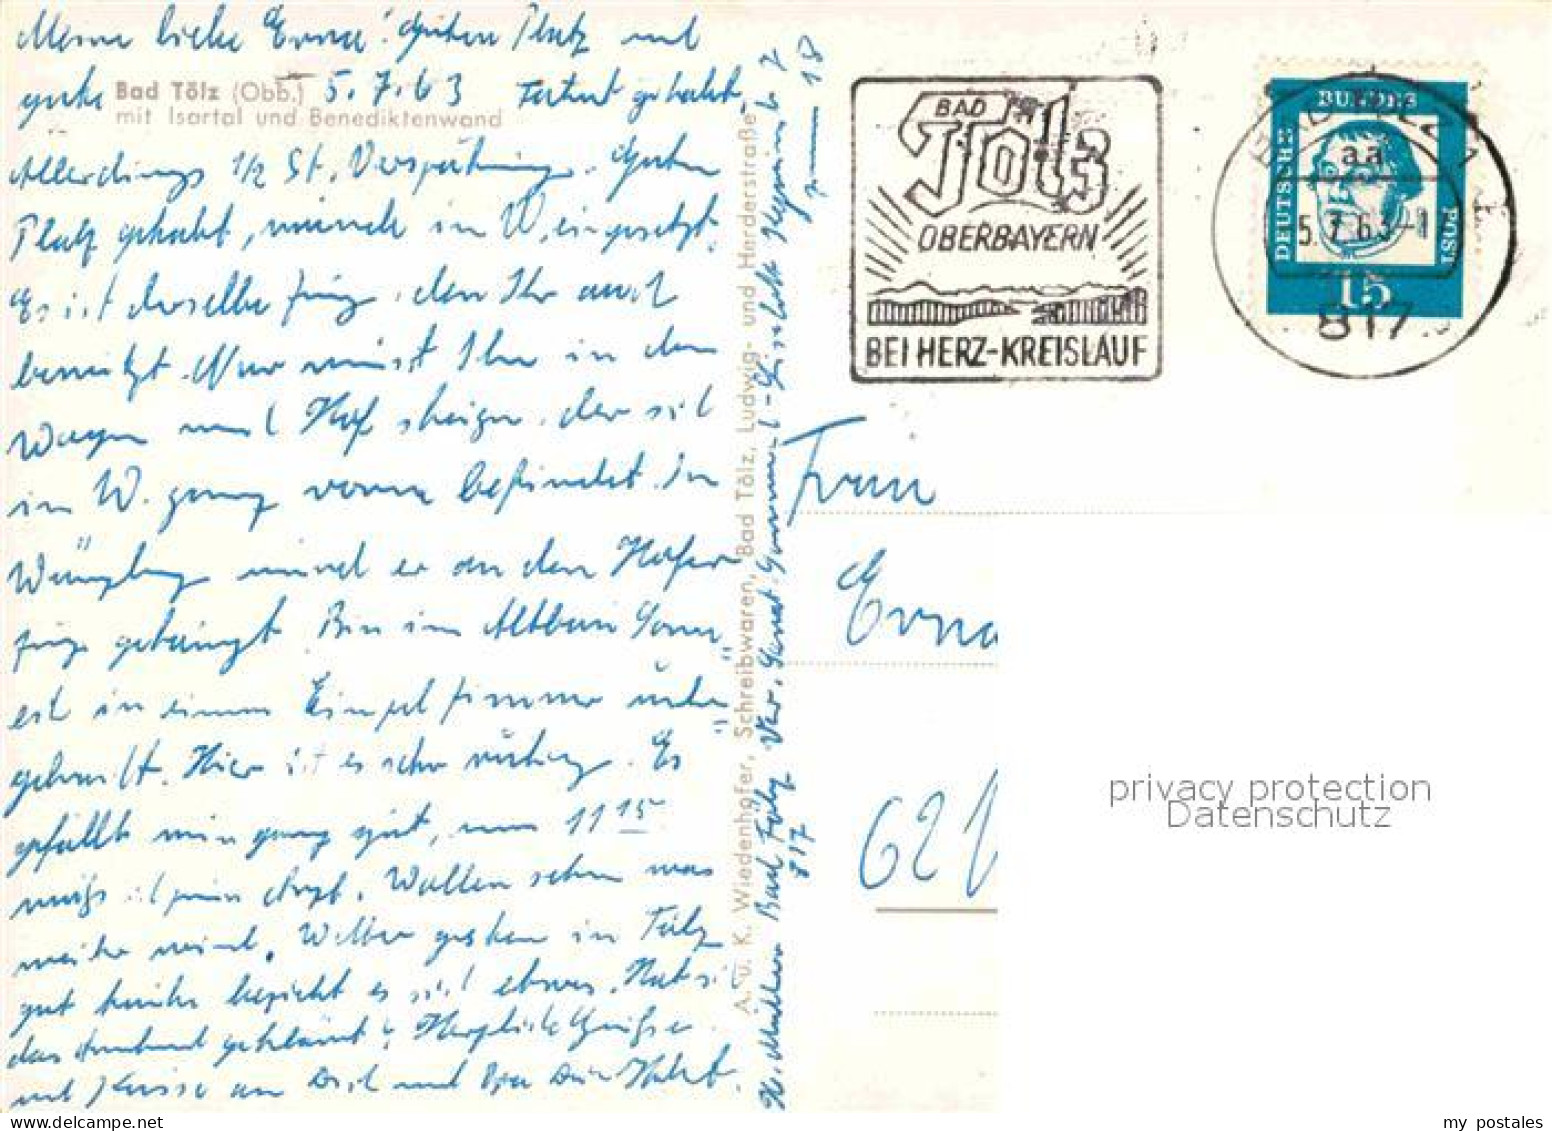 Meine liebe Erna! Guten Platz und
gute
Bad Tölz (Obb.)
5.7.63 Fahrt gehabt,
mit Isartal und Benediktenwand
Allerdings 1/2 St. Verspätung. Guten
Platz gehabt, wurde in W. eingesetzt.
Es ist derselbe Zug, den Ihr auch
benützt. Nur müsst Ihr in den
Wagen nach Hof steigen, der sich
in W. ganz vorne befindet. In
wird er an den Hofer
Zug gehängt. Bin im
in einem Einzelzimmer unter
gebracht. Hier ist es sehr ruhig. Es
gefällt mir ganz gut, um 11 15
muß ich zum Arzt. Wollen sehen was
weiter wird. Wetter gestern in Tölz
gut heute bezieht es sich etwas. Hat sich
das geklärt? Herzliche Grüße
und Küsse an Dich und Opa Dein
A. u. K. Wiedenhofer, Schreibwaren, Bad Tölz, Ludwig- und Herderstraße
Bad Tölz
817
BAD
Tölz
OBERBAYERN
BEI HERZ-KREISLAUF
DEUTSCHE
BUNDES
POST
15
BAD TÖLZ 1
aa
5.7.63-1
817
Frau
Erna
621
privacy protection
Datenschutz
my postales